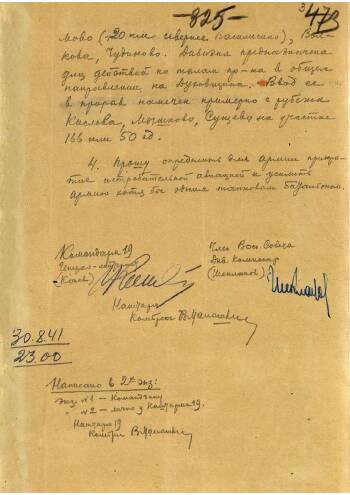 -825-
473
мово (20 км севернее Василисино), Вол-
кова, Чудиново. Дивизия предназначена
для действий по тылам пр-ка в общем
направлении на Духовщина. Ввод ее
в прорыв намечен примерно с рубежа
Кислова, Мышково, Сущево на участке
166 или 50 сд.
4. Прошу определить для армии прикры-
тие истребительной авиацией и усилить
армию хотя бы одним танковым батальоном.
Командарм 19
Генерал-
(Конев)
Член Воен. Совета
Див. комиссар
(Шекланов)
Наштарм
Комбриг В. Малышкин
30.8.41
23.00
Написано в 2х экз:
экз. №1 – Комзапфронту
" №2 – лично у Наштарма 19.
Наштарм 19
Комбриг В. Малышкин